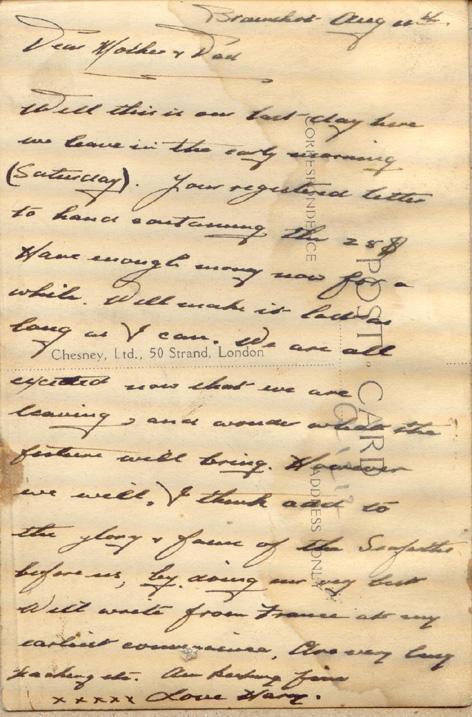 Bramshott Aug 11th.
Dear Mother & Dad
Well this is our last day here
we leave in the early morning
(Saturday). Your registered letter
to hand containing the 25$
Have enough money now for a
while. Will make it last as
long as I can. We are all
excited now that we are
leaving, and wonder what the
future will bring. However
we will, I think add to
the glory & fame of the
before us, by doing our very best
Will write from France at my
earliest convenience. Am very busy
packing etc. Am feeling fine
xxxxx Love Harry.
CORRESPONDENCE
POST CARD
ADDRESS ONLY
Chesney, Ltd., 50 Strand, London